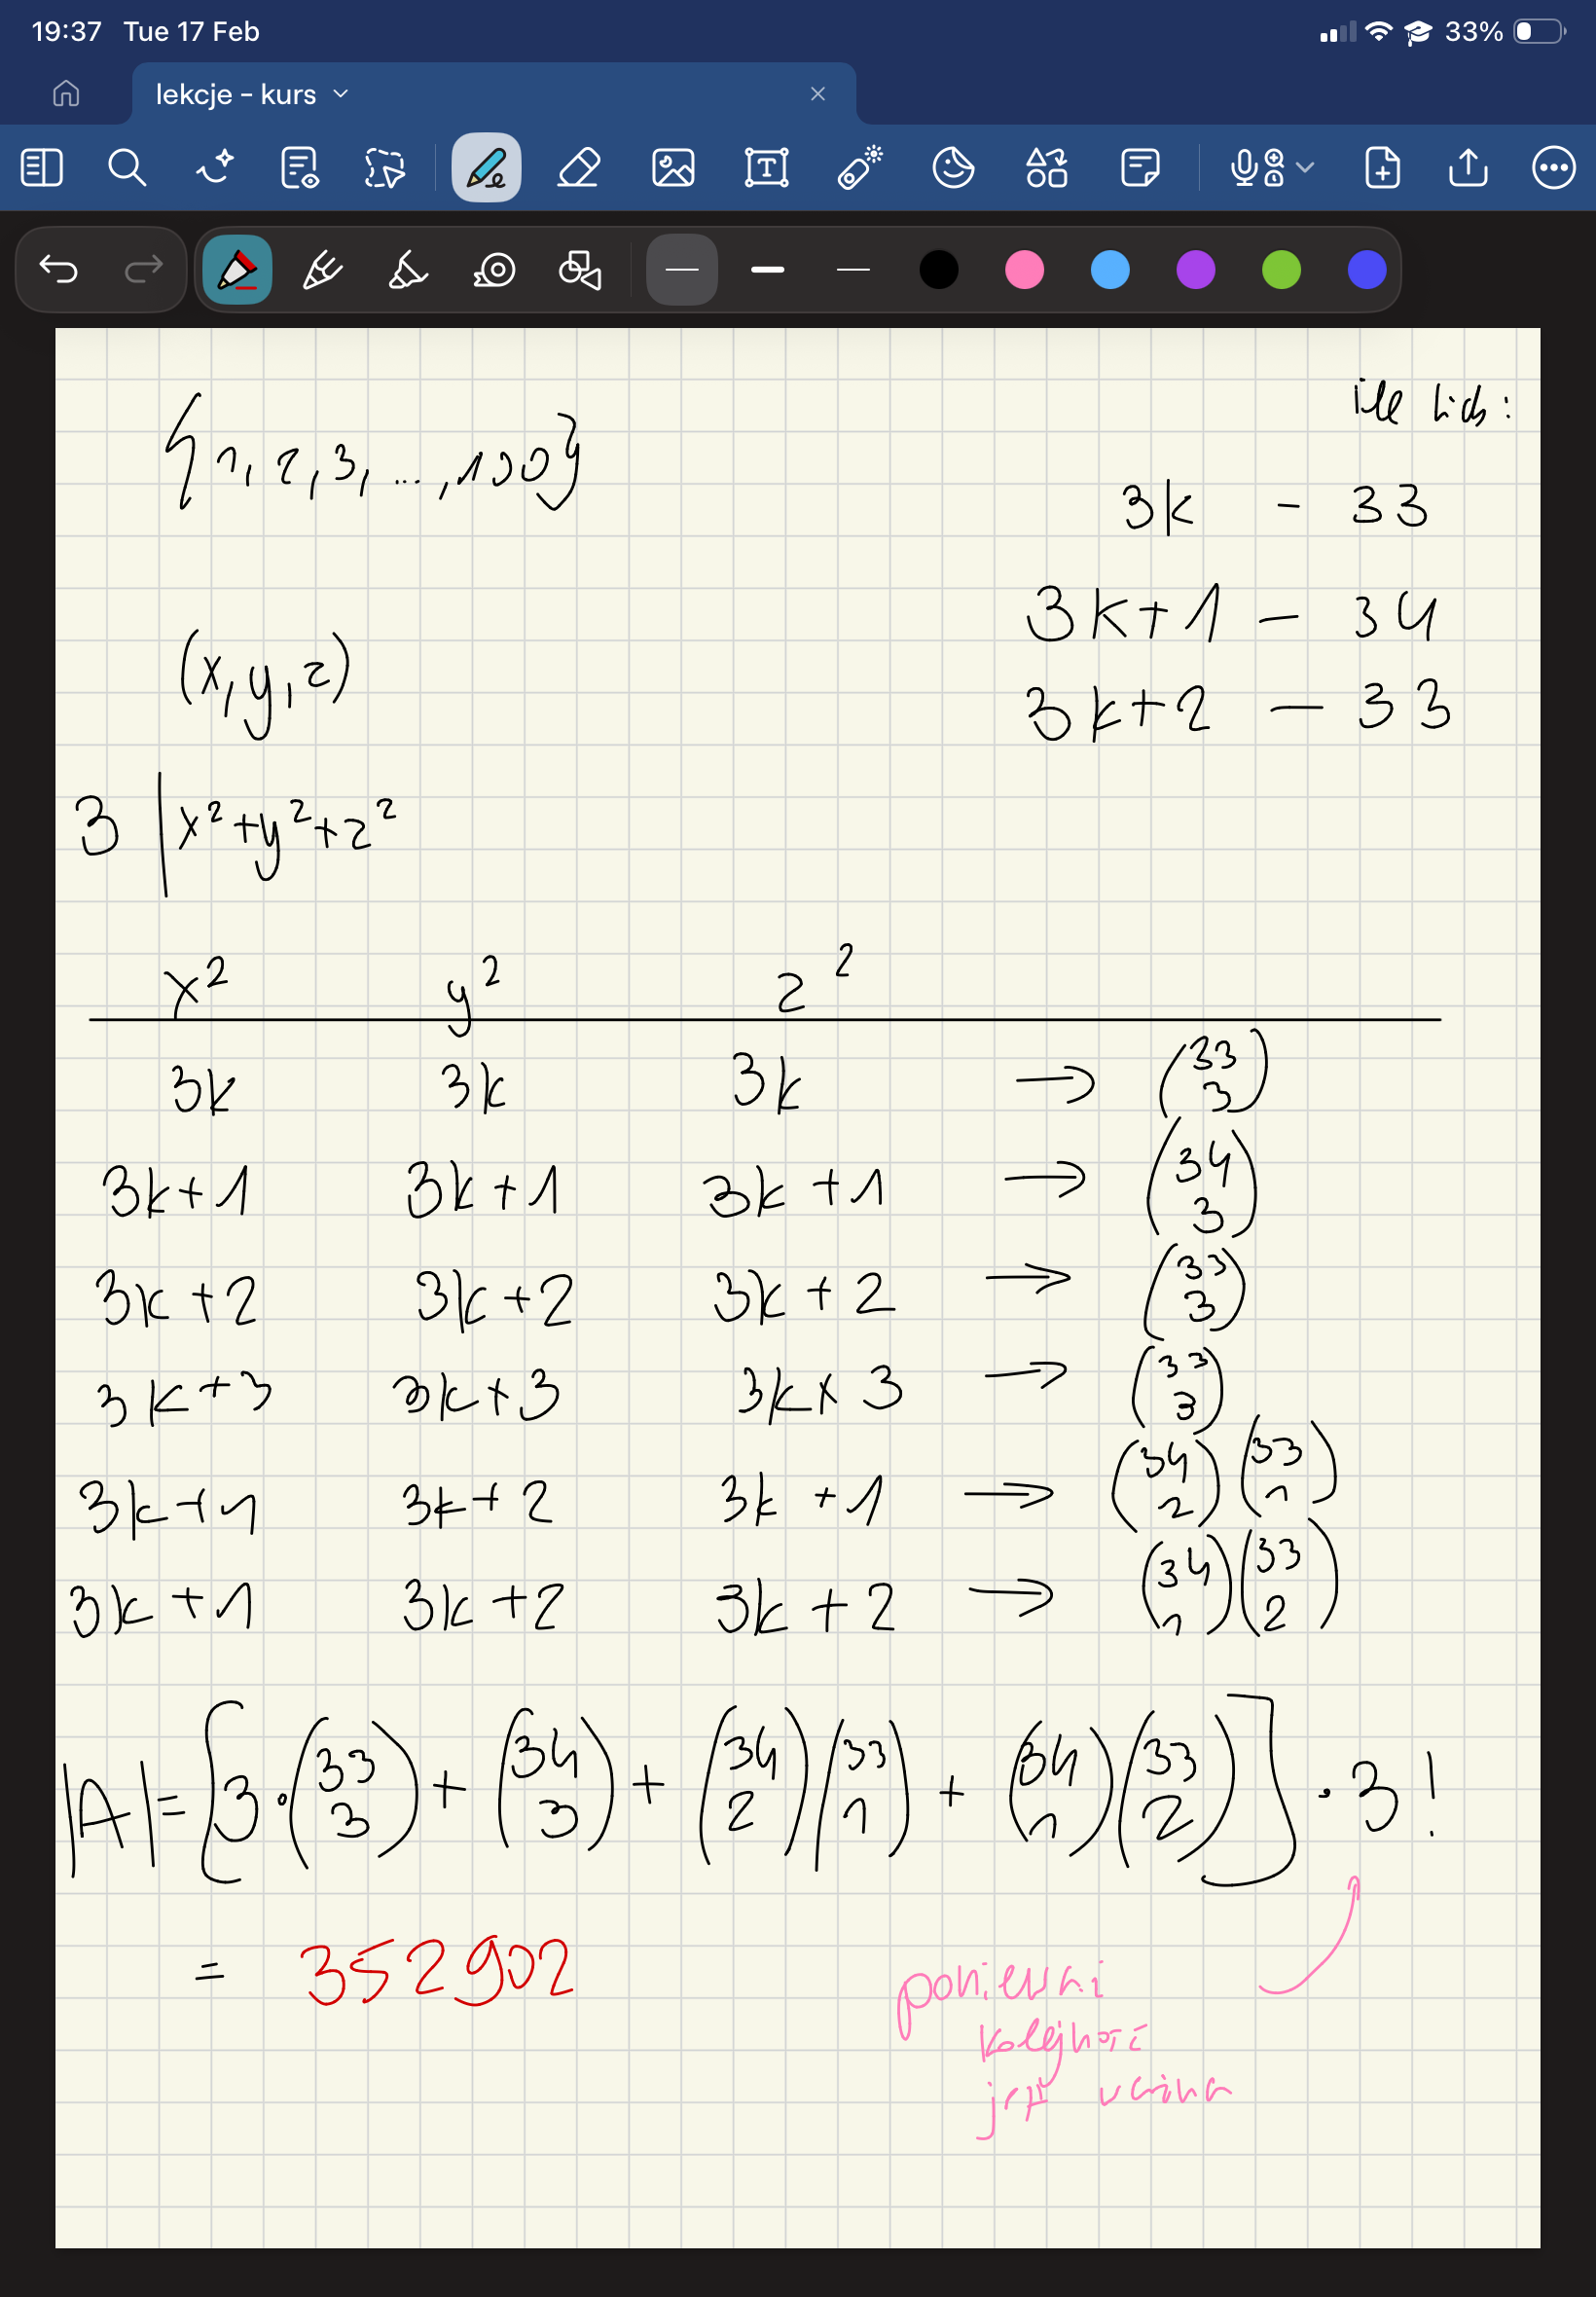 19:37 Tue 17 Feb 33%
lekcje - kurs
ile liczb:
{1, 2, 3, ..., 100}
3k - 33
3k+1 - 34
(x, y, z)
3k+2 - 33
3 | x²+y²+z²
x² y² z²
3k 3k 3k → (33 3)
3k+1 3k+1 3k+1 → (34 3)
3k+2 3k+2 3k+2 → (33 3)
3k+3 3k+3 3k+3 → (33 3)
3k+1 3k+2 3k+1 → (34 2)(33 1)
3k+1 3k+2 3k+2 → (34 1)(33 2)
|A| = [3·(33 3) + (34 3) + (34 2)(33 1) + (34 1)(33 2)] · 3!
= 352902
ponieważ
kolejność
jest ważna